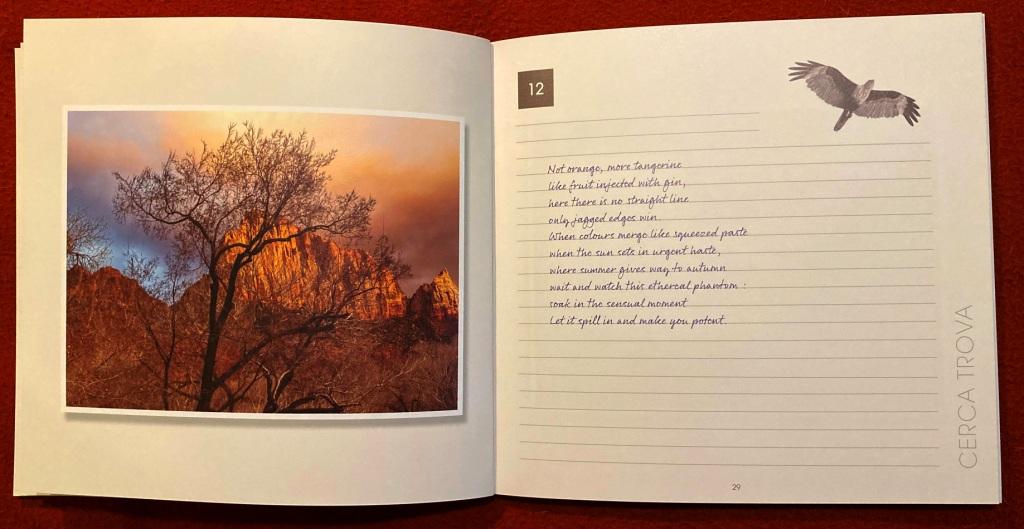 12
Not orange, more tangerine
like fruit injected with gin,
here there is no straight line
only jagged edges win.
When colours merge like squeezed paste
when the sun sets in urgent haste,
where summer gives way to autumn
wait and watch this ethereal phantom :
soak in the sensual moment
Let it spill in and make you potent.
CERCA TROVA
29